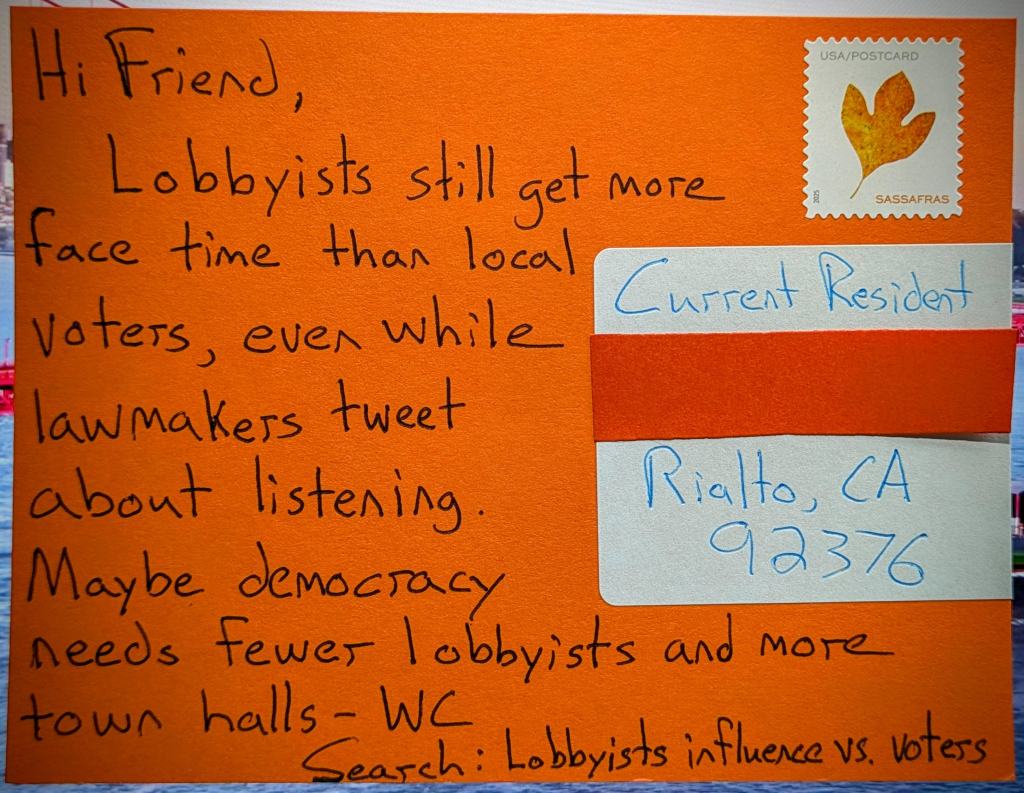 Hi Friend,
Lobbyists still get more
face time than local
voters, even while
lawmakers tweet
about listening.
Maybe democracy
needs fewer lobbyists and more
town halls - WC
Search: Lobbyists influence vs. voters
USA/POSTCARD
2025
SASSAFRAS
Current Resident
Rialto, CA
92376